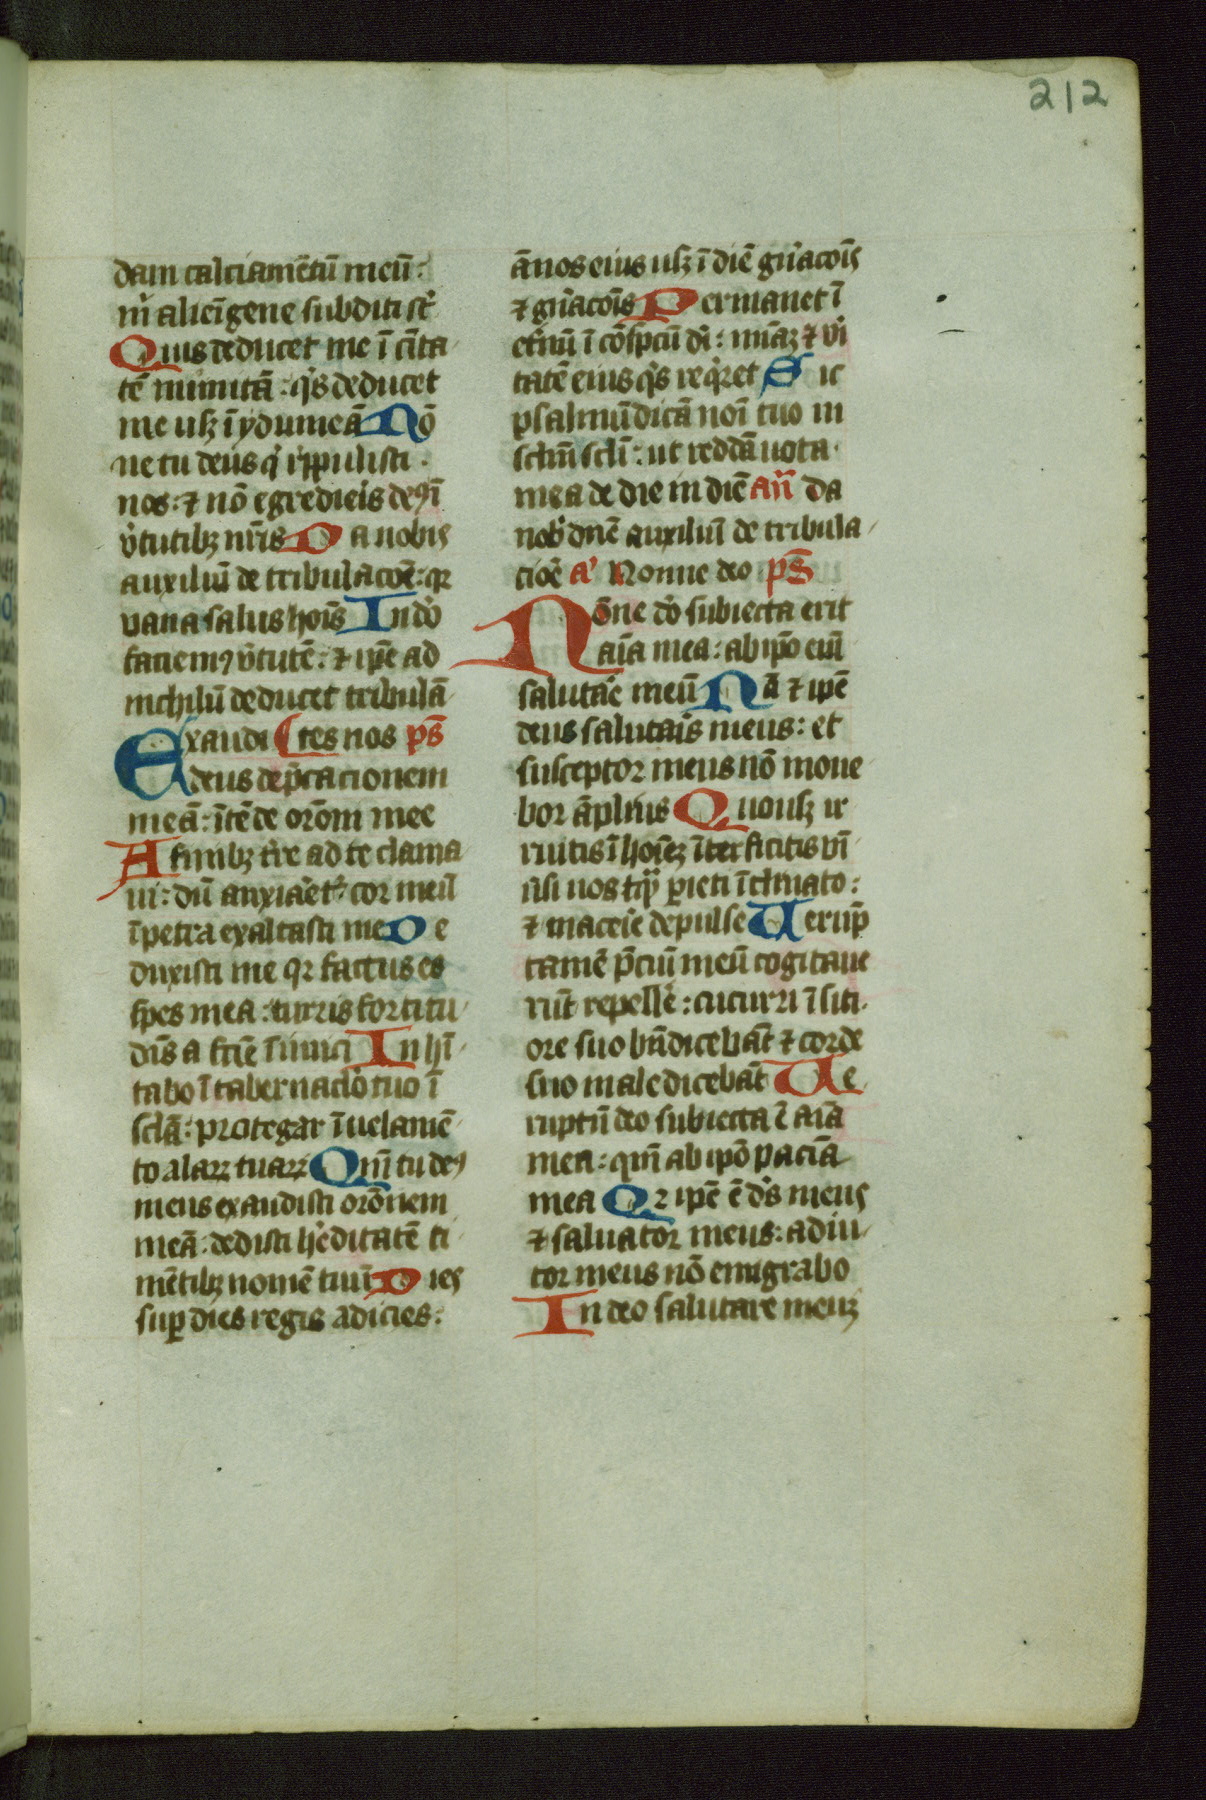 212
dam calciamētū meū:
m̄ alieīgene subditi st̄
Quis deducet me ī cīta
tē munitā: q̇s deducet
me usꝫ ī ydumeā Nō
ne tu deus q̇ r̄ppulisti
nos: ⁊ nō egredieis deꝰ ī
v̇tutibꝫ nr̄is Da nobis
auxiliū de tribulacōe: qꝛ
vana salus hoīs In dō
faciemꝰ v̇tutē: ⁊ ip̄e ad
nichilū deducet tribulā
tes nos ps̄
Exaudi
deus dep̄cacionem
meā: ītēde orōni mee
A finibꝫ tr̄e ad te clama
ui: dū anxiaret᷑ cor meū
ī petra exaltasti me De
duxisti me qꝛ factus es
spes mea: turris fortitu
dīs a facīe inimici In hī
tabo ī tabernaclo tuo ī
sclā: protegar ī uelamē
to alaꝝ tuaꝝ Qm̄ tu deꝰ
meus exaudisti orōnem
meā: dedisti h̄editatē ti
mētibꝫ nomē tuū Dies
suꝑ dies regis adicies:
ānos eius usꝫ ī diē gn̄acōis
⁊ gn̄acōis Permanet ī
et̄nū ī cōspctū di: mīaꝫ ⁊ vi
tatē eius q̇s reqͥret Sic
psalmū dicā noī tuo in
sclm̄ scli: ut reddā uota
mea de die in diē an̄ Da
nob̾ dn̄e auxiliū de tribula
cioē a᾽ Nonne deo ps̄
Nōne dō subiecta erit
aīa mea: ab ip̄o eni
salutāe meū Nā ⁊ ip̄e
deus salutaīs meus: et
susceptor meus nō moue
bor āplius Quousꝫ ir
ruitis ī hoīeꝫ īterficitis vī
ūsi uos tāꝙ̄ ꝑieti īclinato:
⁊ macēie depulse Uerūp̄
tamē p̄ciū meū cogitaue
rūt repellē: cucurri ī siti
ore suo bn̄dicebāt ⁊ corde
suo maledicebāt Ue
ruptn̄ deo subiecta ē aīa
mea: qm̄ ab ipō paciā
mea Qꝛ ip̄e ē dȩ̄s meus
⁊ saluator meus: adiu
tor meus nō emigrabo
In deo salutare meuꝫ